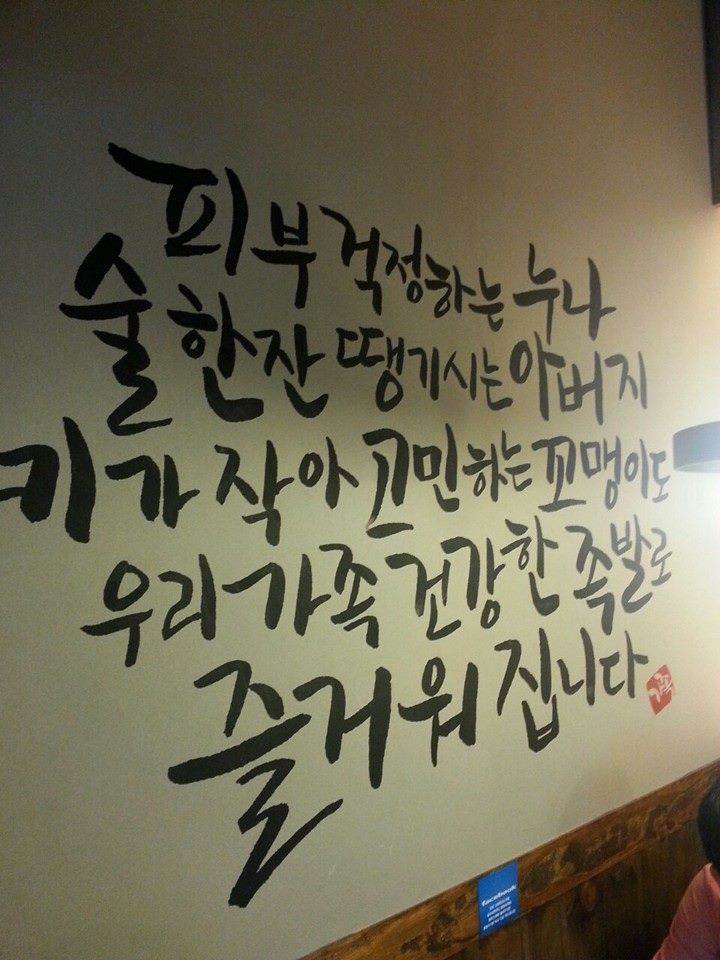 피부 걱정하는 누나
술 한잔 땡기시는 아버지
키가 작아 고민하는 꼬맹이도
우리가족 건강한 족발로
즐거워 집니다
가족
facebook